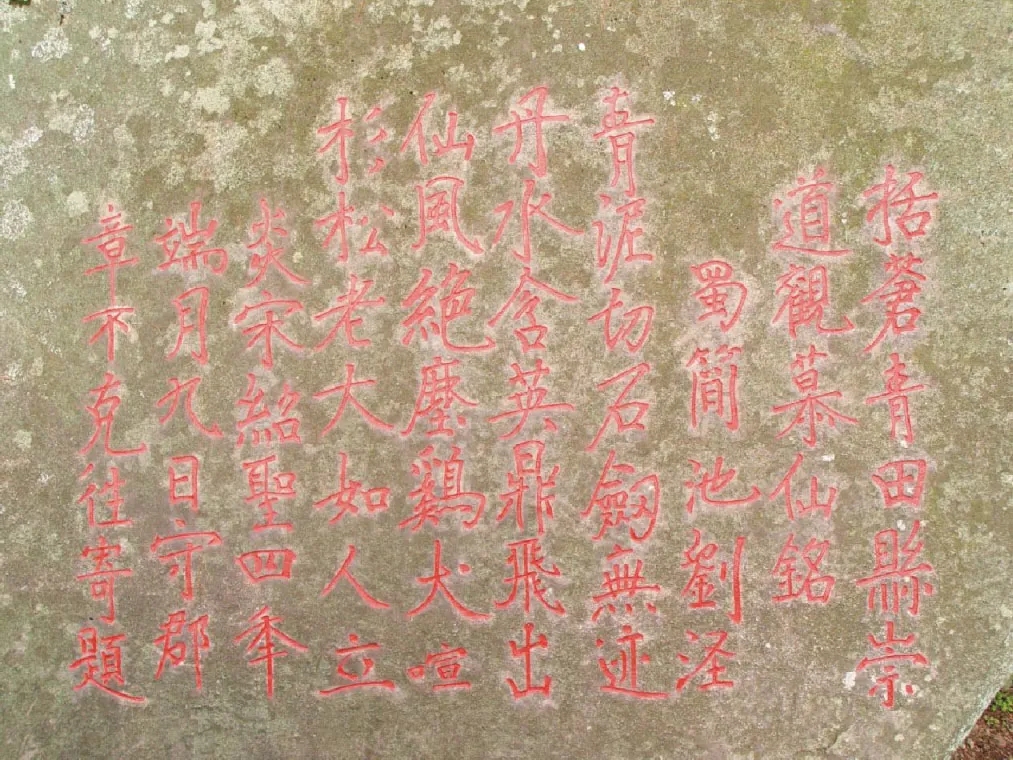 括蒼青田縣崇
道觀慕仙銘
蜀簡池劉涇
青泥切石劔無迹
丹水含英鼎飛出
仙風絶塵鷄犬喧
杉松老大如人立
炎宋紹聖四年
端月九日守郡
章不克往寄題